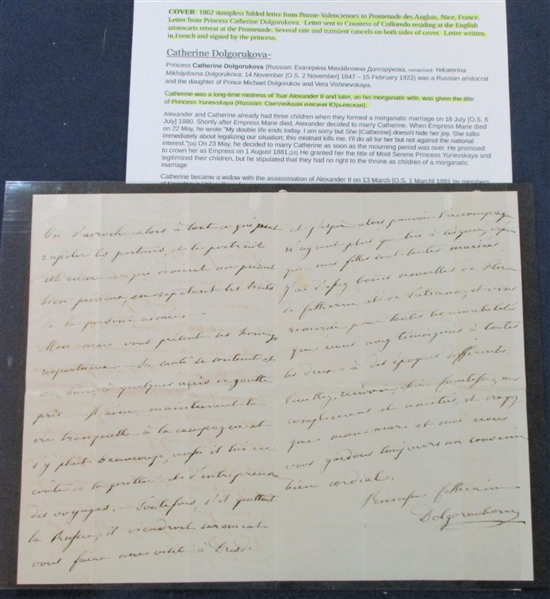 COVER- 1862 stampless folded letter from Prusse-Valenciennes to Promenade des Anglais, Nice, France.
Letter from Princess Catherine Dolgorukova. Letter sent to Countess of Colloredo residing at the English
aristocrats retreat at the Promenade. Several rate and transient cancels on both sides of cover. Letter written
in French and signed by the princess.
Catherine Dolgorukova-
Princess Catherine Dolgorukova (Russian: Екатерина Михайловна Долгорукова, romanized: Yekaterina
Mikhaylovna Dolgorukova; 14 November [O.S. 2 November] 1847 – 15 February 1922) was a Russian aristocrat
and the daughter of Prince Michael Dolgorukov and Vera Vishnevskaya.
Catherine was a long-time mistress of Tsar Alexander II and later, as his morganatic wife, was given the title
of Princess Yurievskaya (Russian: Светлейшая княгиня Юрьевская).
Alexander and Catherine already had three children when they formed a morganatic marriage on 18 July [O.S. 6
July] 1880. Shortly after Empress Marie died, Alexander decided to marry Catherine. When Empress Marie died
on 22 May, he wrote "My double life ends today. I am sorry but She [Catherine] doesn't hide her joy. She talks
immediately about legalizing our situation; this mistrust kills me. I'll do all for her but not against the national
interest."[16] On 23 May, he decided to marry Catherine as soon as the mourning period was over. He promised
to crown her as Empress on 1 August 1881.[16] He granted her the title of Most Serene Princess Yurievskaya and
legitimized their children, but he stipulated that they had no right to the throne as children of a morganatic
marriage
Catherine became a widow with the assassination of Alexander II on 13 March [O.S. 1 March] 1881 by members
On s'accroche alors à tout ce qui peut
rappeler les
bien
de la personne aimée.
Mon mari vous présente ses hommages
respectueux. Sa santé se soutient
à quelques accès de goutte
près. Il aime maintenant la
vie tranquille à la campagne et
s'y plait beaucoup, aussi il lui en
coûte de
des voyages. Toutefois, s'il quittait
la Russie, il viendrait surement
vous faire une visite à
et j'espère alors pouvoir l'accompagner
n'ayant plus que lui à soigner, depuis
que mes filles sont toutes mariées.
J'ai d'assez bonnes nouvelles
de Catherine et de et vous
remercie pour toutes les amabilités
que vous avez témoignées à toutes
les deux à des époques différentes.
Veuillez
compliments et amitiés, et croyez
que mon mari et moi nous
vous gardons toujours un souvenir
bien cordial.
Princesse Catherine
Dolgoroukow